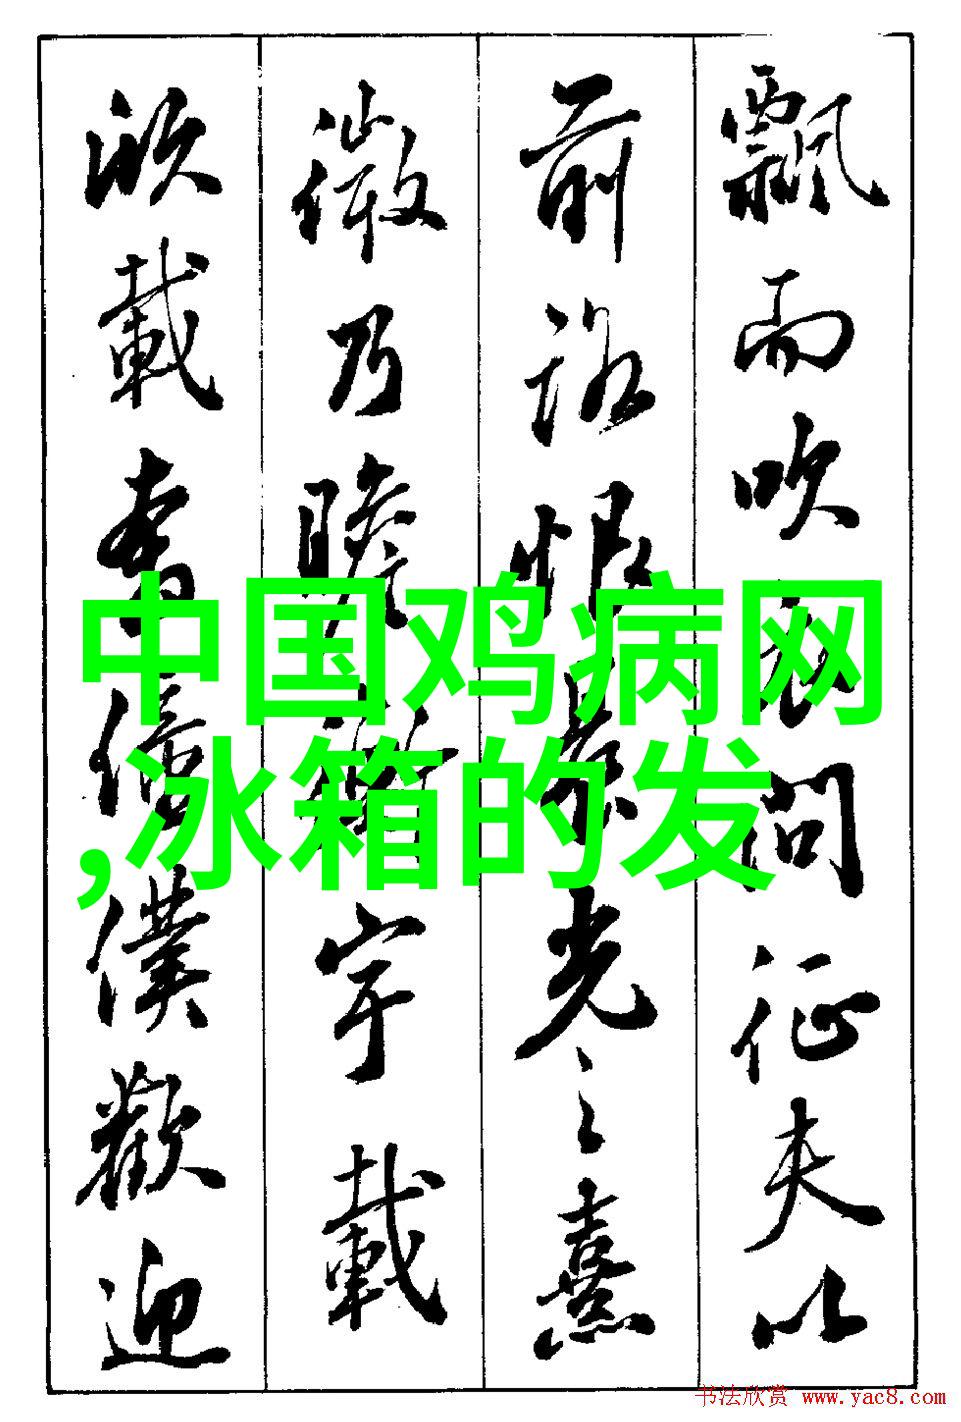 飘而吹衣问征夫以
前路恨晨光之熹
微乃瞻衡宇载
欣载奔僮仆欢迎
中国鸡病网
,冰箱的发
书法欣赏 www.yac8.com